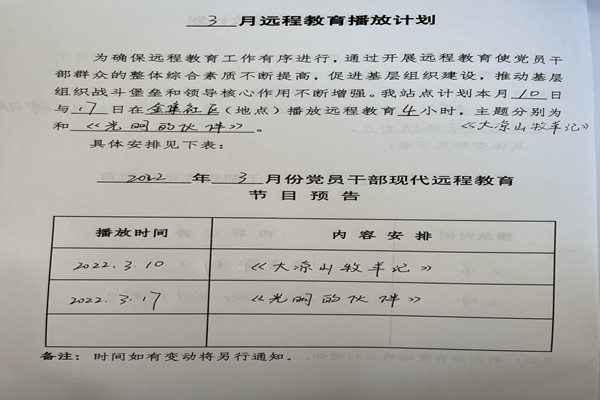 3 月远程教育播放计划
为确保远程教育工作有序进行，通过开展远程教育使党员干
部群众的整体综合素质不断提高，促进基层组织建设，推动基层
组织战斗堡垒和领导核心作用不断增强。我站点计划本月 10 日
与 17 日在 金集社区（地点）播放远程教育 4 小时，主题分别为
《大凉山牧羊记》
和 《光明的伙伴》 。
具体安排见下表：
2022 年 3 月份党员干部现代远程教育
节目预告
播放时间 内容安排
2022.3.10 《大凉山牧羊记》
2022.3.17 《光明的伙伴》
备注：时间如有变动将另行通知。